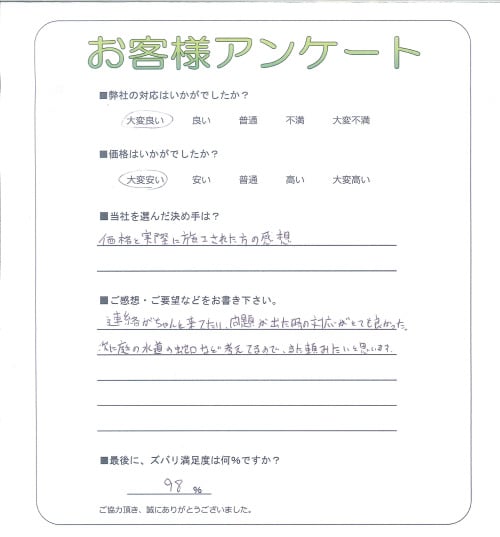 お客様アンケート
■弊社の対応はいかがでしたか？
大変良い 良い 普通 不満 大変不満
■価格はいかがでしたか？
大変安い 安い 普通 高い 大変高い
■当社を選んだ決め手は？
価格と実際に施工された方の感想
■ご感想・ご要望などをお書き下さい。
連絡がちゃんと来てたし、問題が出た時の対応がとても良かった。
次に庭の水道の蛇口など考えてるので、また頼みたいと思います。
■最後に、ズバリ満足度は何%ですか？
98 %
ご協力頂き、誠にありがとうございました。